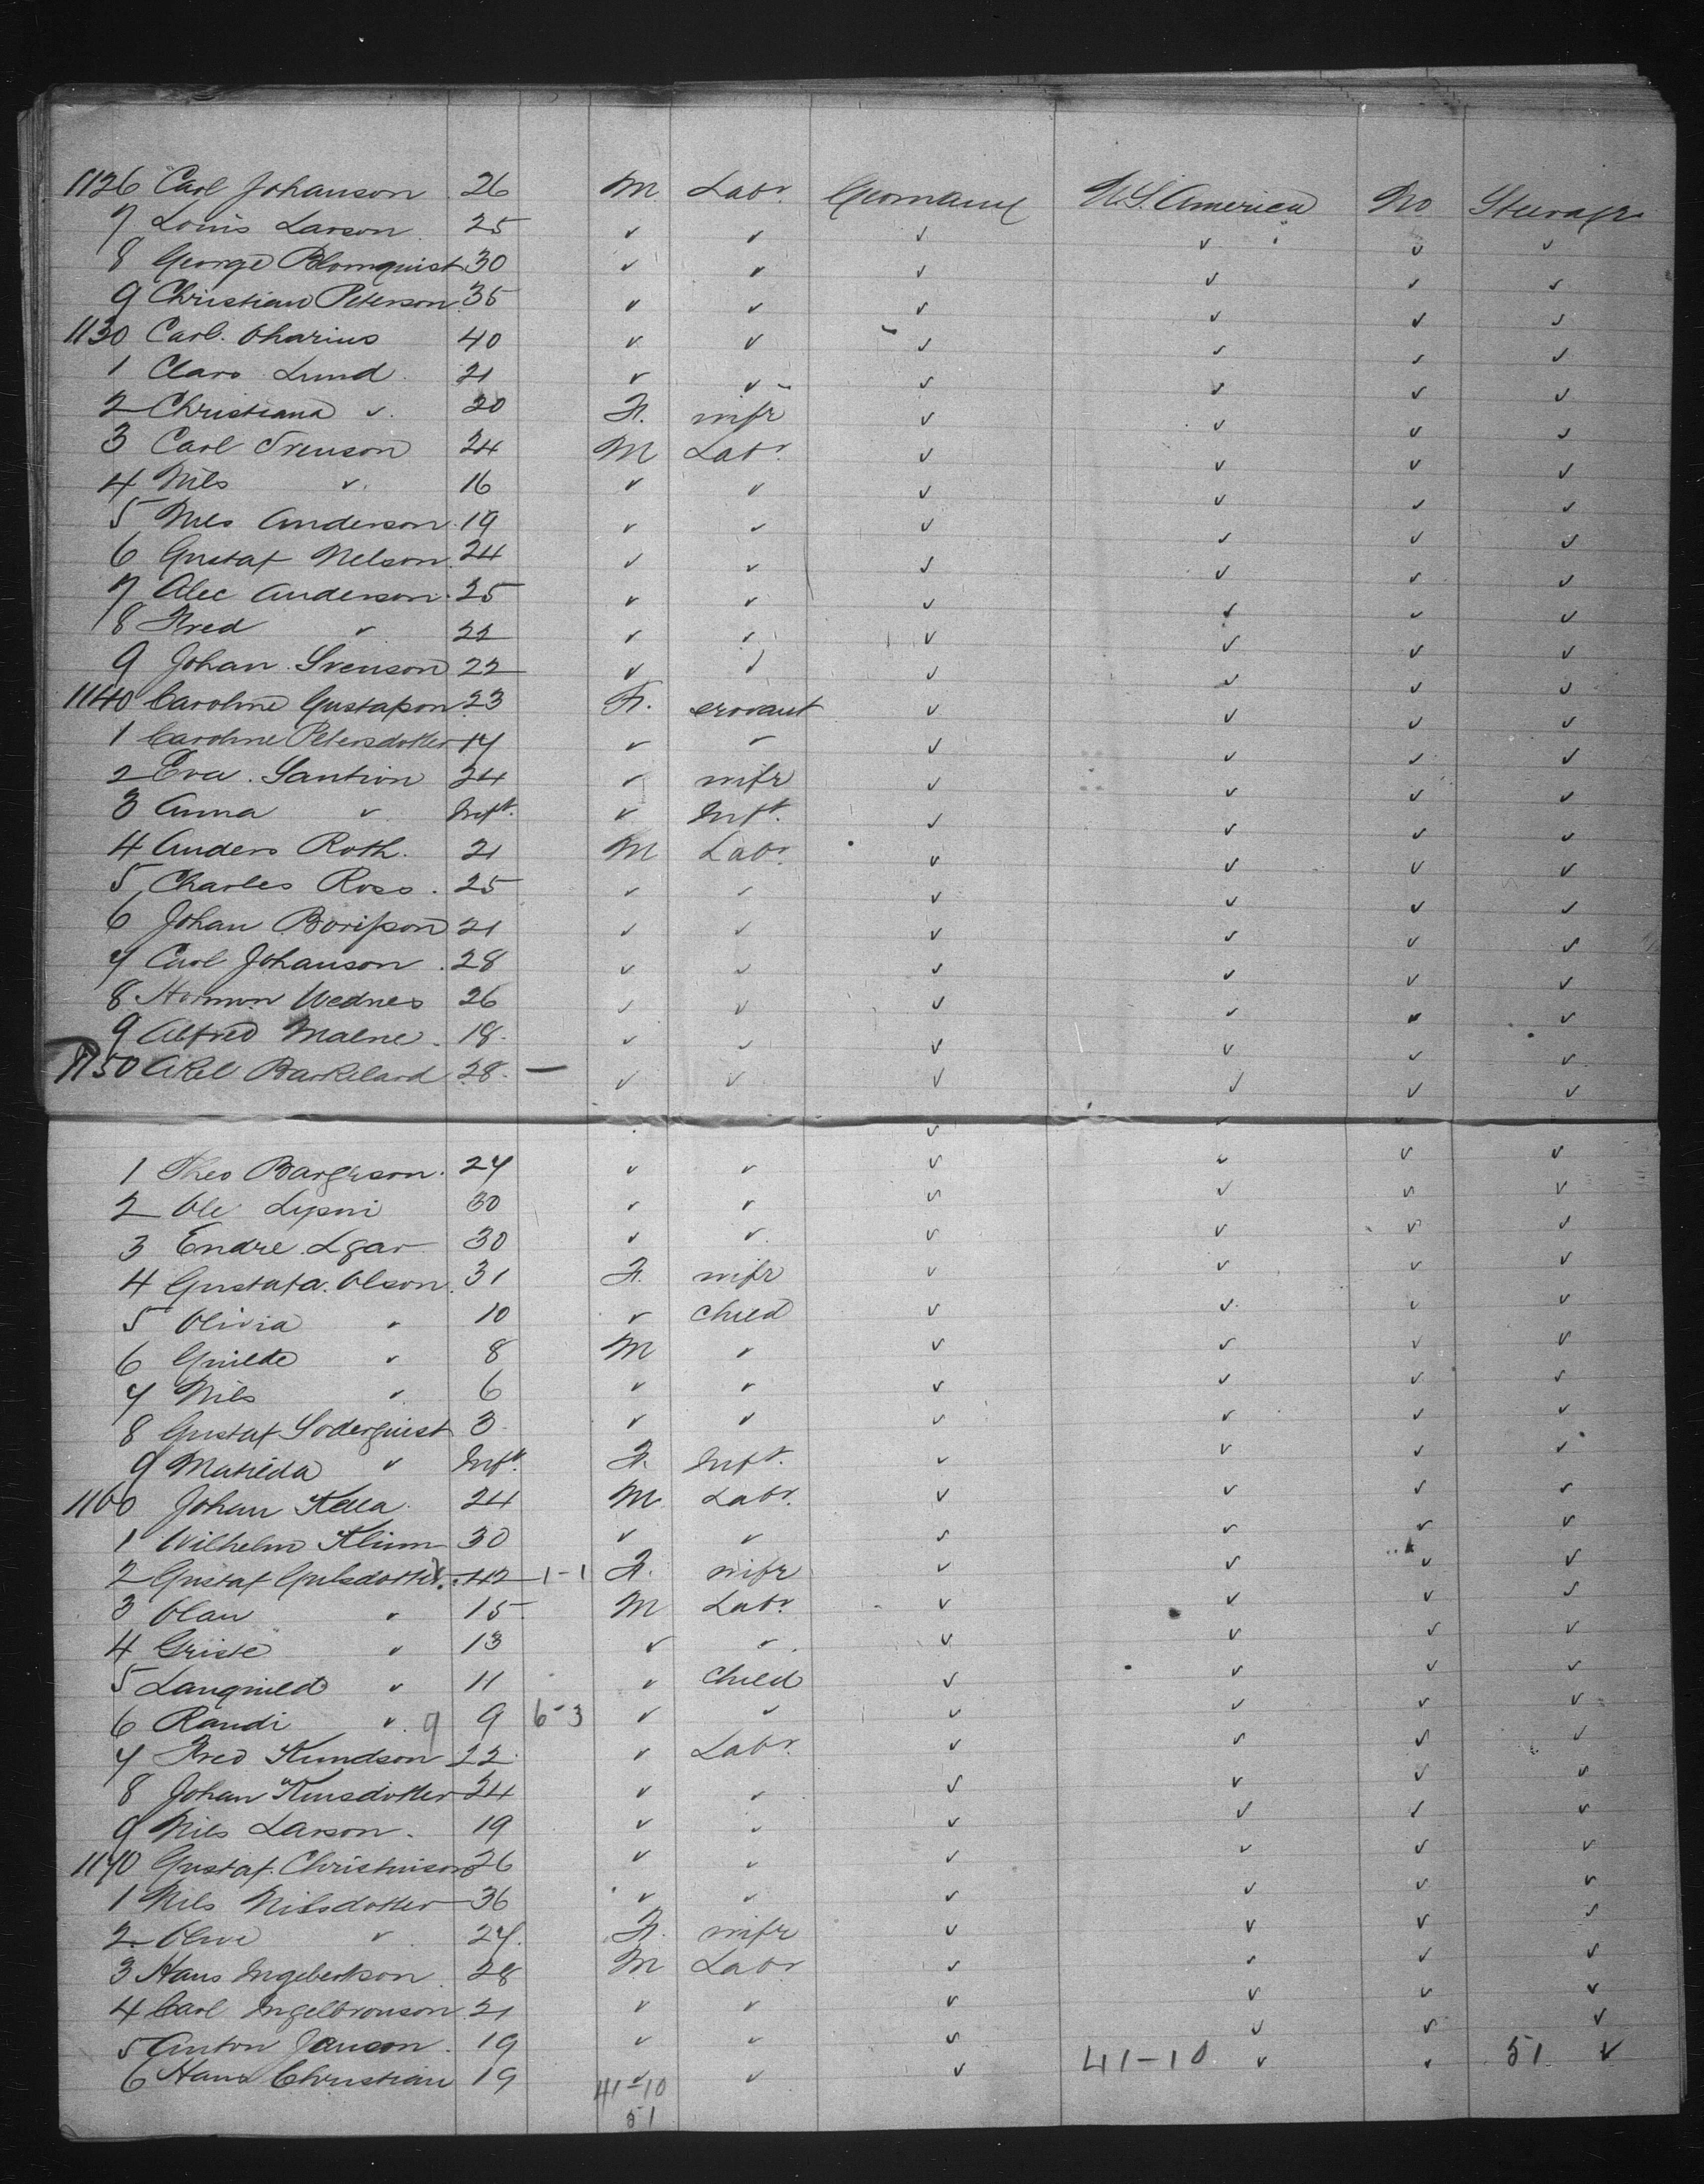 1126 Carl Johanson 26 M Labr. Germany U.S. America No Steerage
7 Louis Larson 25 ✓ ✓ ✓ ✓ ✓ ✓
8 George Blomquist 30 ✓ ✓ ✓ ✓ ✓ ✓
9 Christian Peterson 35 ✓ ✓ ✓ ✓ ✓ ✓
1130 Carl Oharius 40 ✓ ✓ ✓ ✓ ✓ ✓
1 Claro Lund 21 ✓ ✓ ✓ ✓ ✓ ✓
2 Christiana ✓ 20 F. wife ✓ ✓ ✓ ✓
3 Carl Svenson 24 M Labr. ✓ ✓ ✓ ✓
4 Nils ✓ 16 ✓ ✓ ✓ ✓ ✓ ✓
5 Nils Anderson 19 ✓ ✓ ✓ ✓ ✓ ✓
6 Gustaf Nelson 24 ✓ ✓ ✓ ✓ ✓ ✓
7 Alec Anderson 25 ✓ ✓ ✓ ✓ ✓ ✓
8 Fred ✓ 22 ✓ ✓ ✓ ✓ ✓ ✓
9 Johan Svenson 22 ✓ ✓ ✓ ✓ ✓ ✓
1140 Caroline Gustafson 23 F. servant ✓ ✓ ✓ ✓
1 Caroline Petersdotter 17 ✓ ✓ ✓ ✓ ✓ ✓
2 Eva Santion 24 ✓ wife ✓ ✓ ✓ ✓
3 Anna ✓ Inft. ✓ Inft. ✓ ✓ ✓ ✓
4 Anders Roth 21 M Labr. ✓ ✓ ✓ ✓
5 Charles Ross 25 ✓ ✓ ✓ ✓ ✓ ✓
6 Johan Borisson 21 ✓ ✓ ✓ ✓ ✓ ✓
7 Carl Johanson 28 ✓ ✓ ✓ ✓ ✓ ✓
8 Wednes 26 ✓ ✓ ✓ ✓ ✓ ✓
9 Alfred Malne 18 ✓ ✓ ✓ ✓ ✓ ✓
1150 Axel Barkeland 28 — ✓ ✓ ✓ ✓ ✓ ✓
1 Theo Bargeson 27 ✓ ✓ ✓ ✓ ✓ ✓
2 Ole 30 ✓ ✓ ✓ ✓ ✓ ✓
3 Endre Lgar 30 ✓ ✓ ✓ ✓ ✓ ✓
4 Gustafa Olson 31 F. wife ✓ ✓ ✓ ✓
5 Olivia ✓ 10 ✓ Child ✓ ✓ ✓ ✓
6 Guilde ✓ 8 M ✓ ✓ ✓ ✓ ✓
7 Nils ✓ 6 ✓ ✓ ✓ ✓ ✓ ✓
8 Gustaf Soderquist 3 ✓ ✓ ✓ ✓ ✓ ✓
9 Matilda ✓ Inft. F. Inft. ✓ ✓ ✓ ✓
1160 Johan Kella 24 M Labr. ✓ ✓ ✓ ✓
1 Wilhelm Klium 30 ✓ ✓ ✓ ✓ ✓ ✓
2 Gustaf Gulsdotter 42 1-1 F. wife ✓ ✓ ✓ ✓
3 Olau ✓ 15 M Labr. ✓ ✓ ✓ ✓
4 Griste ✓ 13 ✓ ✓ ✓ ✓ ✓ ✓
5 Languild ✓ 11 ✓ Child ✓ ✓ ✓ ✓
6 Randi ✓ 9 9 6-3 ✓ ✓ ✓ ✓ ✓ ✓
7 Fred Kundson 22 ✓ Labr. ✓ ✓ ✓ ✓
8 Johan Knusdotter 24 ✓ ✓ ✓ ✓ ✓ ✓
9 Nils Larson 19 ✓ ✓ ✓ ✓ ✓ ✓
1170 Gustaf Christinson 26 ✓ ✓ ✓ ✓ ✓ ✓
1 Nils Nilsdotter 36 ✓ ✓ ✓ ✓ ✓ ✓
2 Olive ✓ 27 F. wife ✓ ✓ ✓ ✓
3 Hans Ingebertson 28 M Labr ✓ ✓ ✓ ✓
4 Carl Ingelbronson 21 ✓ ✓ ✓ ✓ ✓ ✓
5 Anton Janson 19 ✓ ✓ ✓ ✓ ✓ ✓
6 Hans Christian 19 ✓ ✓ ✓ 41-10 ✓ ✓ 51 ✓
41-10
51